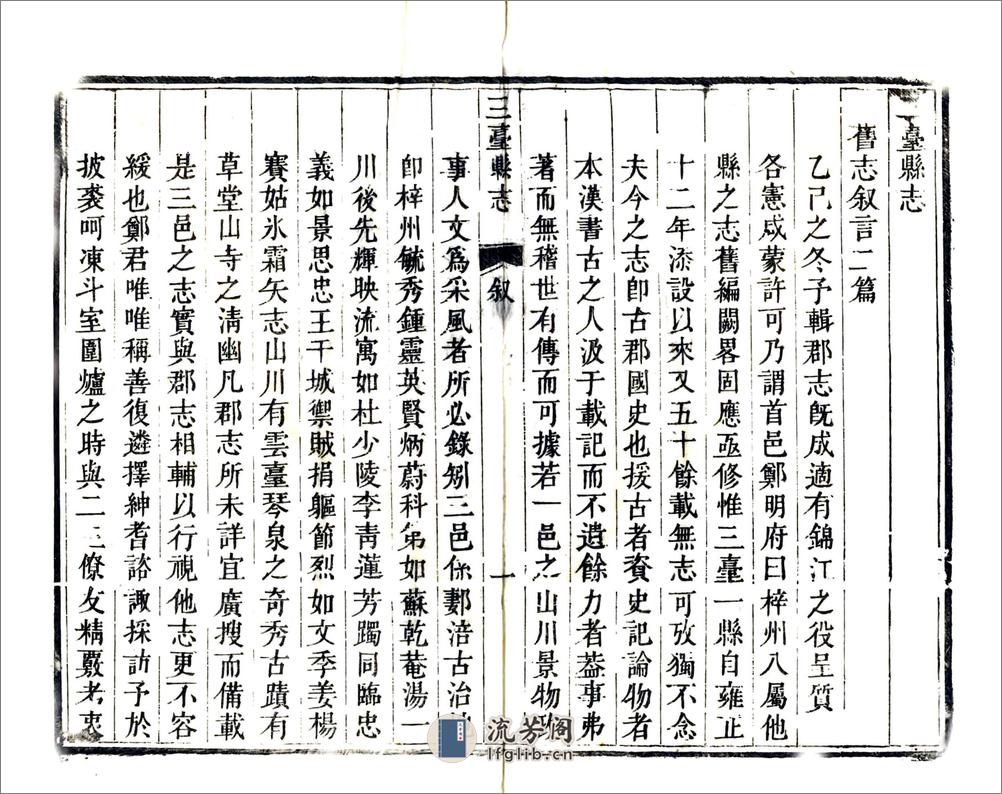 臺縣志
舊志叙言二篇
乙己之冬予輯郡志旣成適有錦江之役呈質
各憲咸蒙許可乃謂首邑鄭明府曰梓州八屬他
縣之志舊編闕畧固應亟修惟三臺一縣自雍正
十二年添設以來又五十餘載無志可攷獨不念
夫今之志卽古郡國史也援古者資史記論物者
本漢書古之人汲于載記而不遺餘力者葢事弗
著而無稽世有傳而可據若一邑之山川景物
三臺縣志 叙 一
事人文爲采風者所必錄矧三邑係鄷涪古治
卽梓州毓秀鍾靈英賢炳蔚科第如蘇乾菴湯一
川後先輝映流寓如杜少陵李靑蓮芳躅同臨忠
義如景思忠王干城禦賊捐軀節烈如文季姜楊
賽姑氷霜矢志山川有雲臺琴泉之奇秀古蹟有
草堂山寺之淸幽凡郡志所未詳宜廣搜而備載
是三邑之志實與郡志相輔以行視他志更不容
緩也鄭君唯唯稱善復遴擇紳耆諮諏採訪予於
披裘呵凍斗室圍爐之時與二三僚友精覈考衷
流芳阁
lfglib.cn